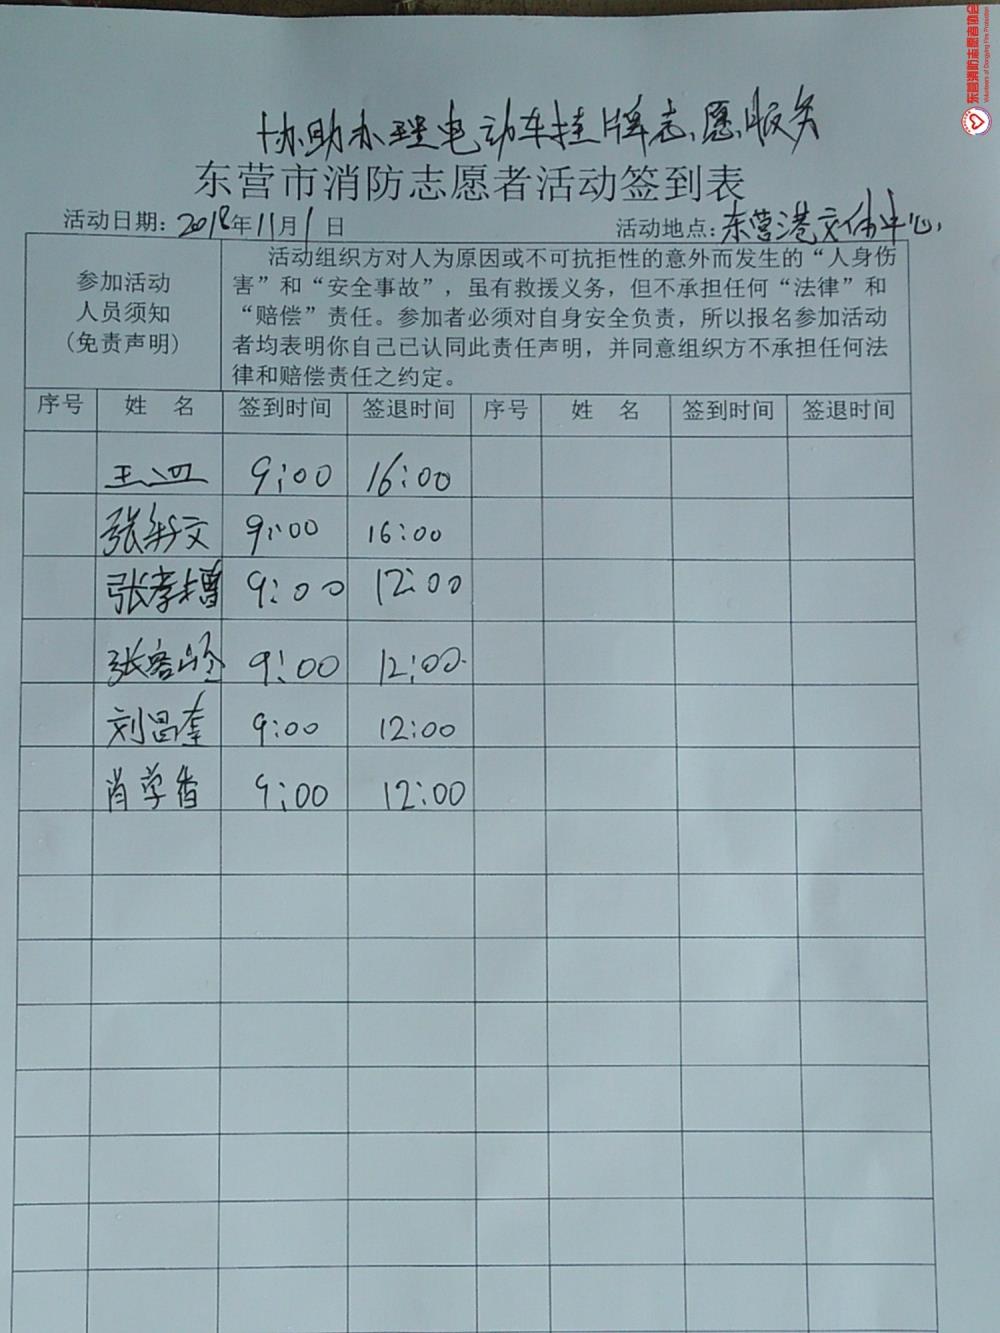 东营消防志愿者协会
Volunteers of Dongying Fire Protection
协助办理电动车挂牌志愿服务
东营市消防志愿者活动签到表
活动日期: 2018年11月1日 活动地点: 东营港文体中心
参加活动
人员须知
(免责声明)
活动组织方对人为原因或不可抗拒性的意外而发生的“人身伤
害”和“安全事故”，虽有救援义务，但不承担任何“法律”和
“赔偿”责任。参加者必须对自身安全负责，所以报名参加活动
者均表明你自己已认同此责任声明，并同意组织方不承担任何法
律和赔偿责任之约定。
序号 姓 名 签到时间 签退时间 序号 姓 名 签到时间 签退时间
王 9:00 16:00
张 文 9:00 16:00
张孝增 9:00 12:00
张客 9:00 12:00
刘昌奎 9:00 12:00
肖学香 9:00 12:00